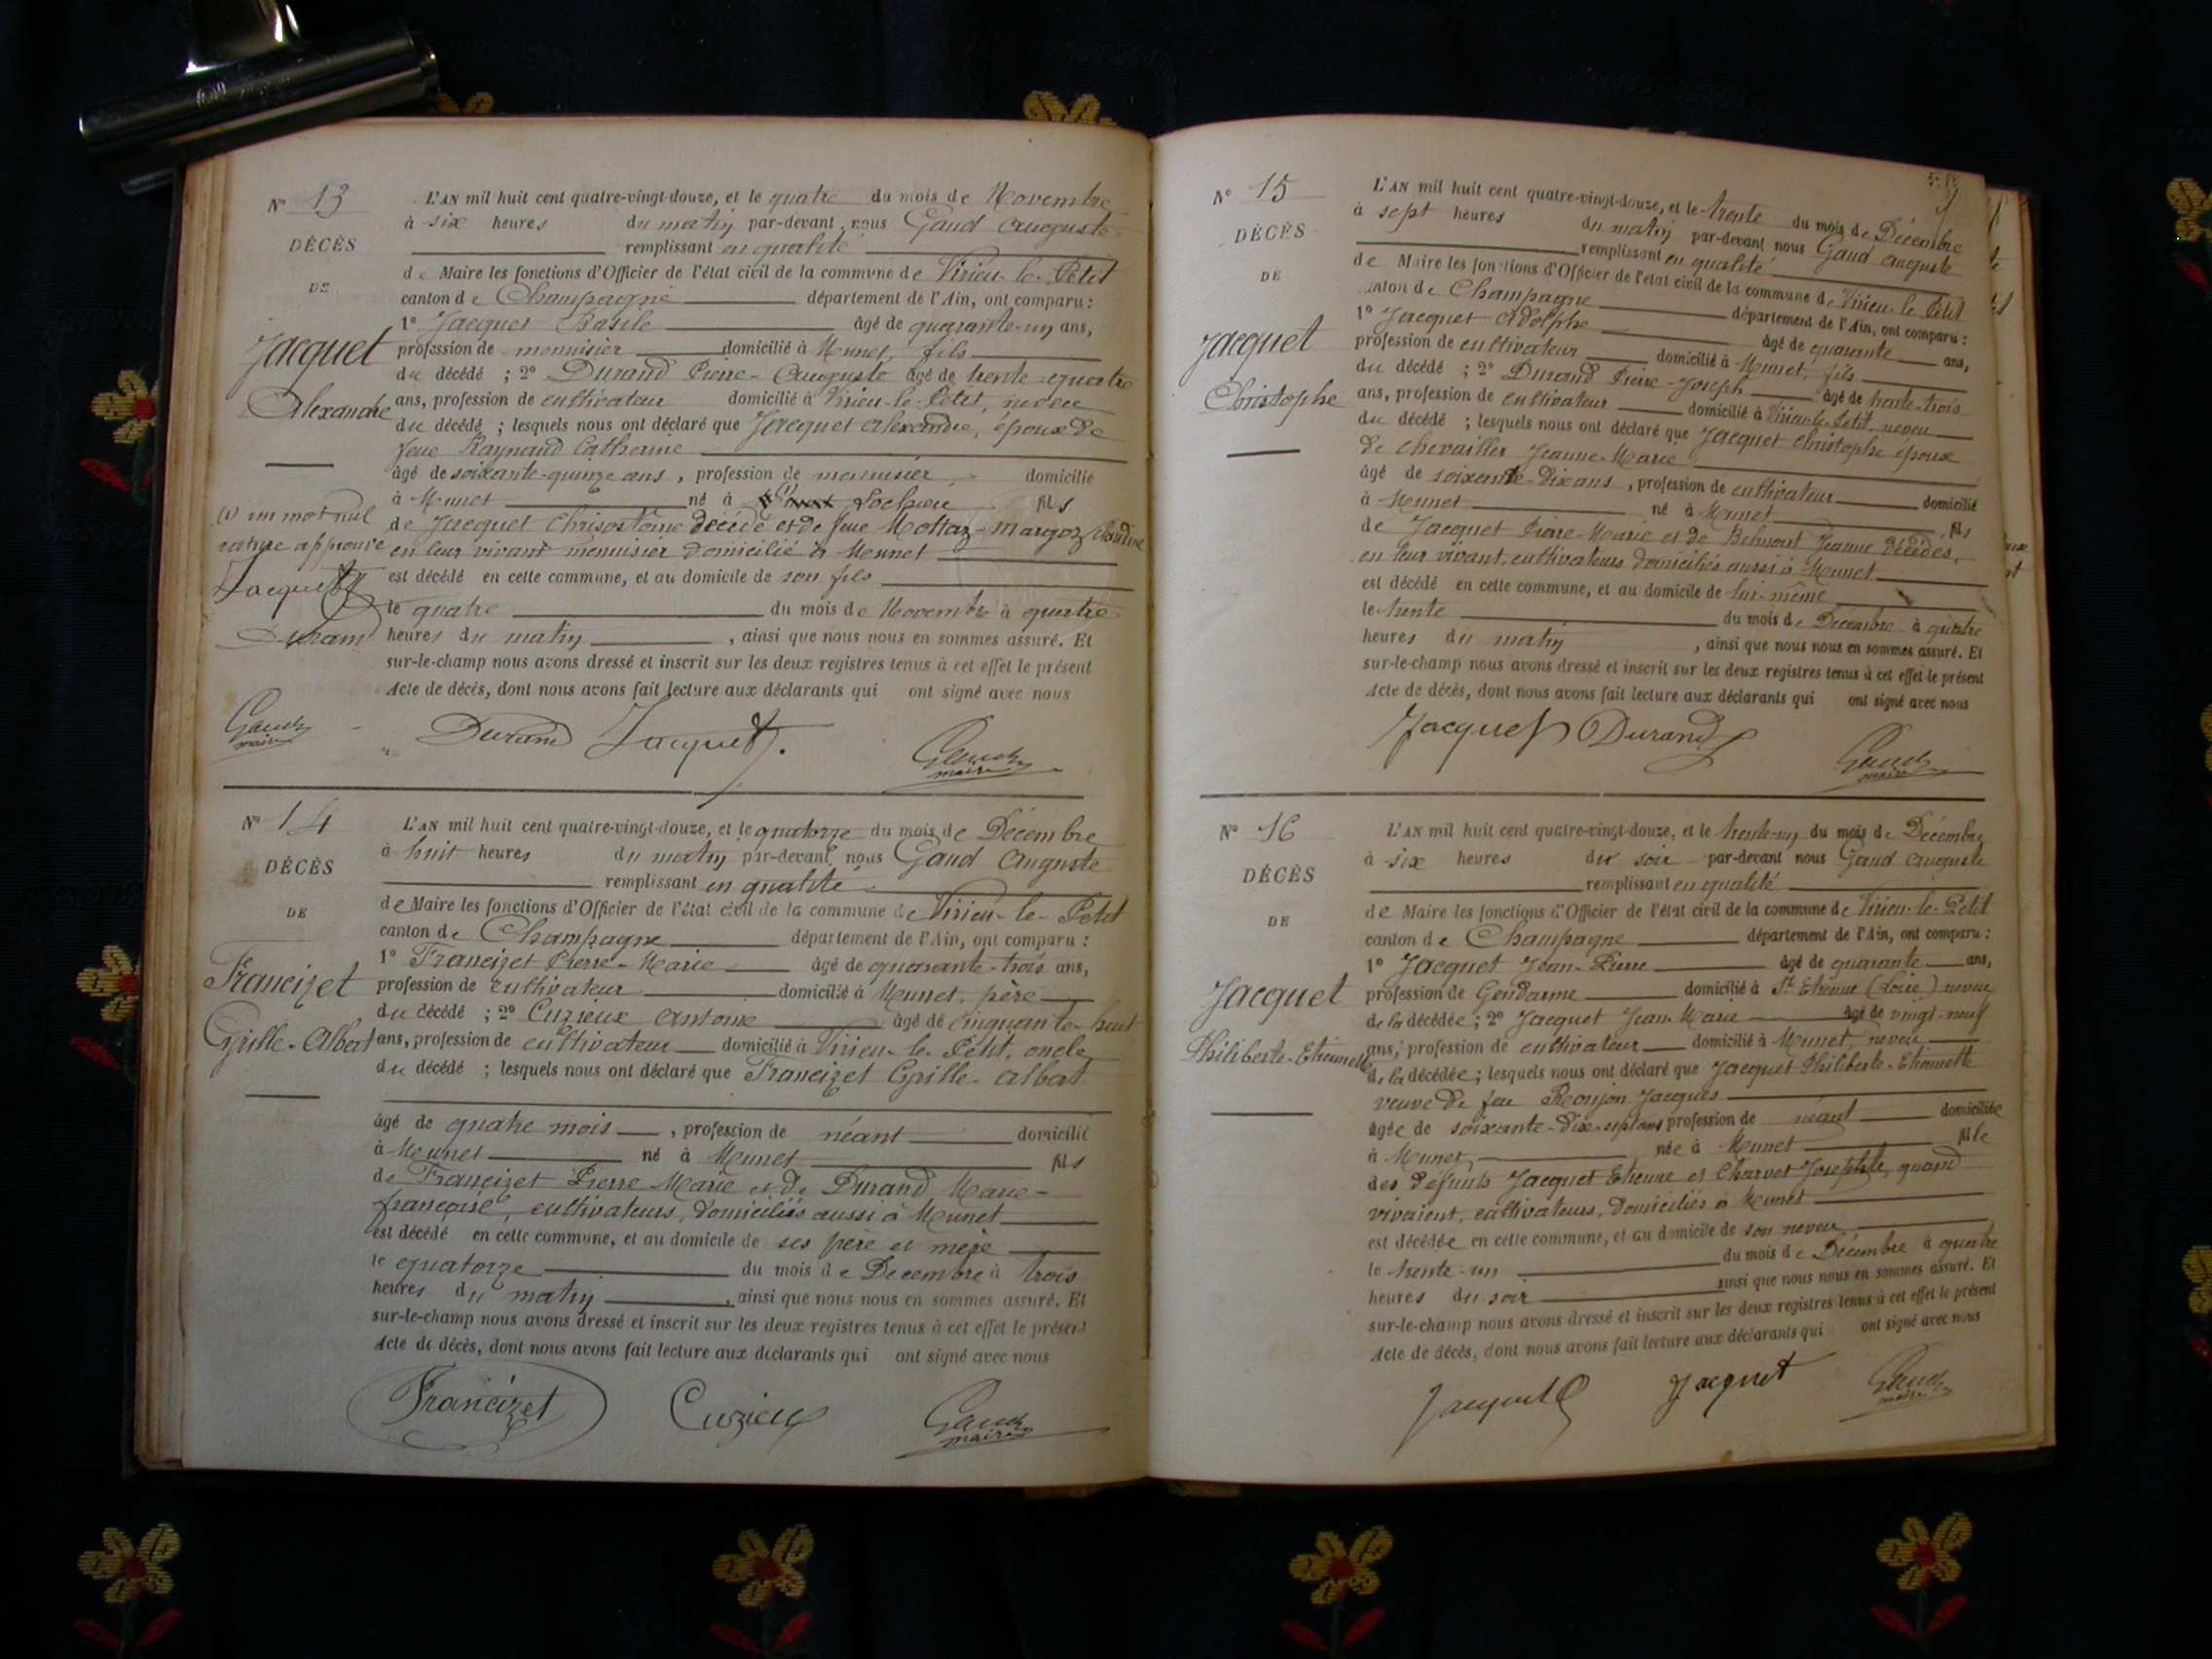 N° 13
DÉCÈS
DE
Jacquet
Alexandre
(1) un mot nul
rature approuvé
Jacquet
Durand
Gaud
maire
L'AN mil huit cent quatre-vingt-douze, et le quatre du mois de Novembre
à six heures du matin par-devant nous Gaud Auguste
remplissant en qualité
de Maire les fonctions d'Officier de l'état civil de la commune de Virieu-le-Petit
canton de Champagne département de l'Ain, ont comparu :
1° Jacquet Basile âgé de quarante-un ans,
profession de menuisier domicilié à Munet, fils
du décédé ; 2° Durand Pierre-Auguste âgé de trente-quatre
ans, profession de cultivateur domicilié à Virieu-le-Petit, neveu
du décédé ; lesquels nous ont déclaré que Jacquet Alexandre, époux de
feue Raynaud Catherine
âgé de soixante-quinze ans, profession de menuisier domicilié
à Munet né à (1) Lochieu fils
de Jacquet Chrisostôme décédé et de feue Mottaz-Margoz Claudine
en leur vivant menuisier domicilié à Munet
est décédé en cette commune, et au domicile de son fils
le quatre du mois de Novembre à quatre
heures du matin, ainsi que nous nous en sommes assuré. Et
sur-le-champ nous avons dressé et inscrit sur les deux registres tenus à cet effet le présent
Acte de décès, dont nous avons fait lecture aux déclarants qui ont signé avec nous
Durand Jacquet Gaud
maire
N° 14
DÉCÈS
DE
Francizet
Grille-Albert
L'AN mil huit cent quatre-vingt-douze, et le quatorze du mois de Décembre
à huit heures du matin par-devant nous Gaud Auguste
remplissant en qualité
de Maire les fonctions d'Officier de l'état civil de la commune de Virieu-le-Petit
canton de Champagne département de l'Ain, ont comparu :
1° Francizet Pierre-Marie âgé de quarante-trois ans,
profession de cultivateur domicilié à Munet, père
du décédé ; 2° Cuzieux Antoine âgé de cinquante-huit
ans, profession de cultivateur domicilié à Virieu-le-Petit, oncle
du décédé ; lesquels nous ont déclaré que Francizet Grille-Albert
âgé de quatre mois, profession de néant domicilié
à Munet né à Munet fils
de Francizet Pierre Marie et de Durand Marie-
françoise, cultivateurs, domiciliés aussi à Munet
est décédé en cette commune, et au domicile de ses père et mère
le quatorze du mois de Decembre à trois
heures du matin, ainsi que nous nous en sommes assuré. Et
sur-le-champ nous avons dressé et inscrit sur les deux registres tenus à cet effet le présent
Acte de décès, dont nous avons fait lecture aux déclarants qui ont signé avec nous
Francizet Cuzieux Gaud
maire
N° 15
DÉCÈS
DE
Jacquet
Christophe
L'AN mil huit cent quatre-vingt-douze, et le trente du mois de Décembre
à sept heures du matin par-devant nous Gaud Auguste
remplissant en qualité
de Maire les fonctions d'Officier de l'état civil de la commune de Virieu-le-Petit
canton de Champagne département de l'Ain, ont comparu :
1° Jacquet Adolphe âgé de quarante ans,
profession de cultivateur domicilié à Munet, fils
du décédé ; 2° Durand Pierre-Joseph âgé de trente-trois
ans, profession de cultivateur domicilié à Virieu-le-Petit, neveu
du décédé ; lesquels nous ont déclaré que Jacquet Christophe époux
de Chevailler Jeanne-Marie
âgé de soixante-dix ans, profession de cultivateur domicilié
à Munet né à Munet fils
de Jacquet Pierre-Marie et de Belmont Jeanne décédés,
en leur vivant, cultivateurs domiciliés aussi à Munet
est décédé en cette commune, et au domicile de lui-même
le trente du mois de Décembre à quatre
heures du matin, ainsi que nous nous en sommes assuré. Et
sur-le-champ nous avons dressé et inscrit sur les deux registres tenus à cet effet le présent
Acte de décès, dont nous avons fait lecture aux déclarants qui ont signé avec nous
Jacquet Durand Gaud
maire
N° 16
DÉCÈS
DE
Jacquet
Philiberte-Etiennette
L'AN mil huit cent quatre-vingt-douze, et le trente-un du mois de Décembre
à six heures du soir par-devant nous Gaud Auguste
remplissant en qualité
de Maire les fonctions d'Officier de l'état civil de la commune de Virieu-le-Petit
canton de Champagne département de l'Ain, ont comparu :
1° Jacquet Jean-Pierre âgé de quarante ans,
profession de Gendarme domicilié à St Etienne (Loire) neveu
de la décédée ; 2° Jacquet Jean-Marie âgé de vingt-neuf
ans, profession de cultivateur domicilié à Munet, neveu
de la décédée ; lesquels nous ont déclaré que Jacquet Philiberte-Etiennette
veuve de feu Reonjon Jacques
âgée de soixante-dix-sept ans profession de néant domiciliée
à Munet, née à Munet fille
des defunts Jacquet Etienne et Charvet Josephte, quand
vivaient, cultivateurs, domiciliés à Munet
est décédée en cette commune, et au domicile de son neveu
le trente-un du mois de Décembre à quatre
heures du soir ainsi que nous nous en sommes assuré. Et
sur-le-champ nous avons dressé et inscrit sur les deux registres tenus à cet effet le présent
Acte de décès, dont nous avons fait lecture aux déclarants qui ont signé avec nous
Jacquet Jacquet Gaud
maire